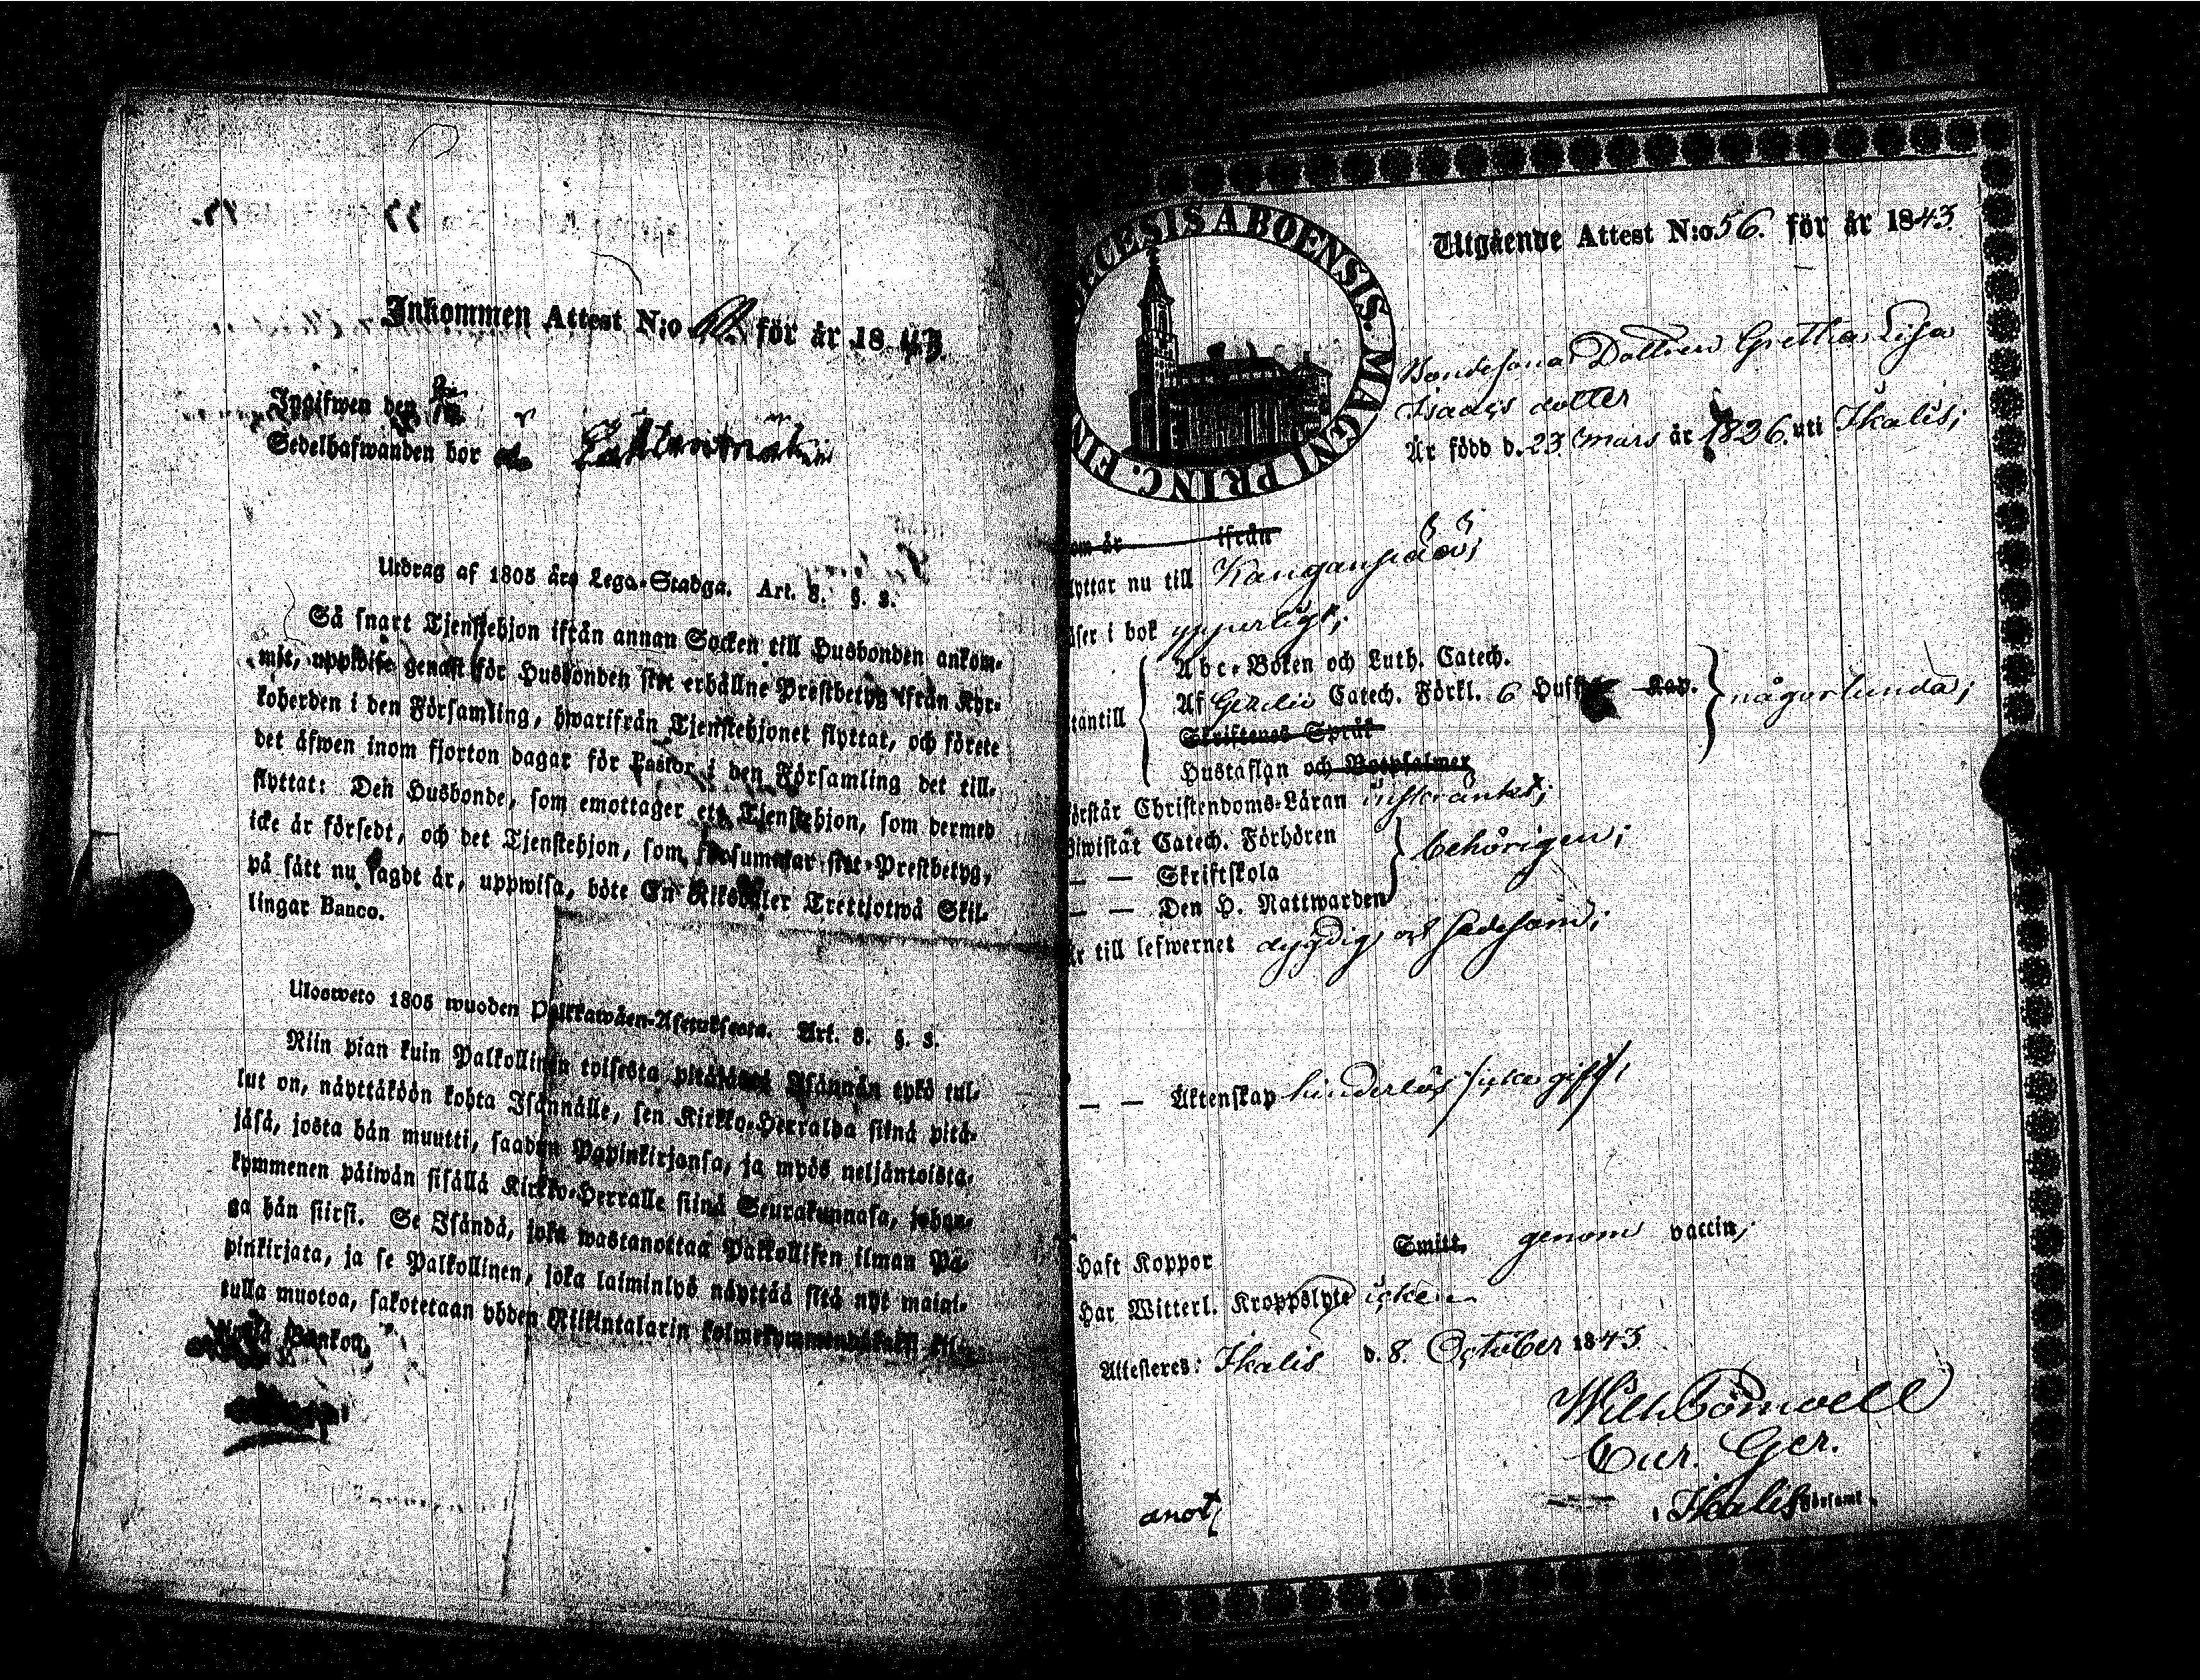 Inkommen Attest N:o för år 1843.
Ingifwen den
Sedelhafwanden bor
Utdrag af 1805 års Lego-Stadga. Art. 8. §. 3.
Så snart Tjenstehjon ifrån annan Socken till Husbonden ankom-
mit, uppwise genast för Husbonden sitt erhållne Prestbetyg ifrån Kyr-
koherden i den Församling, hwarifrån Tjenstehjonet flyttat, och förete
det äfwen inom fjorton dagar för Pastor i den Församling det till-
flyttat: Den Husbonde, som emottager ett Tjenstehjon, som dermed
icke är försedt, och det Tjenstehjon, som försummar sitt Prestbetyg,
på sätt nu sagdt är, uppwisa, böte En Riksdaler Trettjotwå Skil-
lingar Banco.
Uloswето 1805 wuoden Palkkawäen-Asetuksesta. Art. 8. §. 3.
Niin pian kuin Palkollinen toisesta pitäjästä Isännän tykö tul-
lut on, näyttäköön kohta Isännälle, sen Kirkko-Herralda siinä pitä-
jäsä, josta hän muutti, saadun Papinkirjansa, ja myös neljäntoista-
kymmenen päiwän sisällä Kirkko-Herralle siinä Seurakunnasa, johon-
ga hän siirsi. Se Isändä, joka wastanottaa Palkollisen ilman Pa-
pinkirjata, ja se Palkollinen, joka laiminlyö näyttää sitä nyt maini-
tulla muotoa, sakotetaan yhden Riikintalarin
Bankoa.
DIŒCESIS ABOENSIS. MAGNI PRINC. FIN
Utgående Attest N:o 56. för år 1843.
Bondesona Dottren Gretha Lisa
Isaacs dotter
Är född d. 23 Mars år 1826. uti Ikalis;
om år ifrån
lyttar nu till Kanganpää;
äser i bok ypperligt;
Abc-Boken och Luth. Catech.
utantill Af Gezelii Catech. Förkl. 6 Hufst. någorlunda;
Skriftenes Språk
Hustaflan och Botpsalmer
örstår Christendoms-Läran inskränkt;
Biwistat Catech. Förhören
— — Skriftskola behörigen;
— — Den H. Nattwarden
är till lefwernet dygdig och sedesam;
— — Äktenskap hinderlös /icke gift/
Haft Koppor Smitt. genom vaccin;
Har Witterl. Kroppslyte icke.
Attesteres: Ikalis d. 8. October 1843.
Cur. Ger.
i Ikalis Församl.
anot